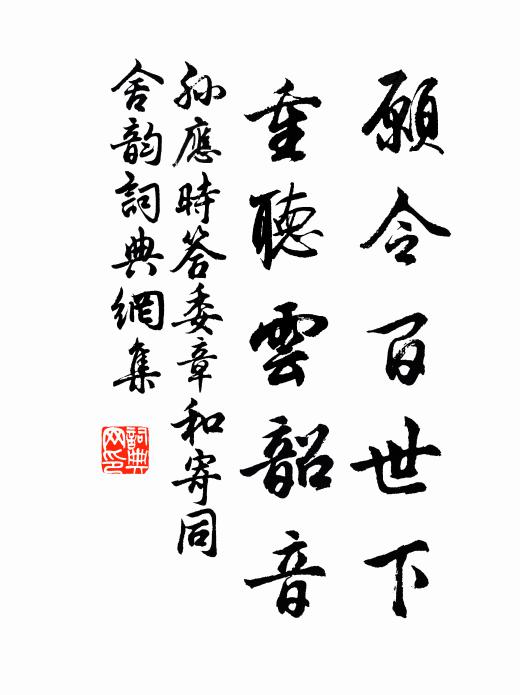 願令百世下
重聽雲韶音
孫應時答委章和寄同
舍韵詞典網集
詞典
网印